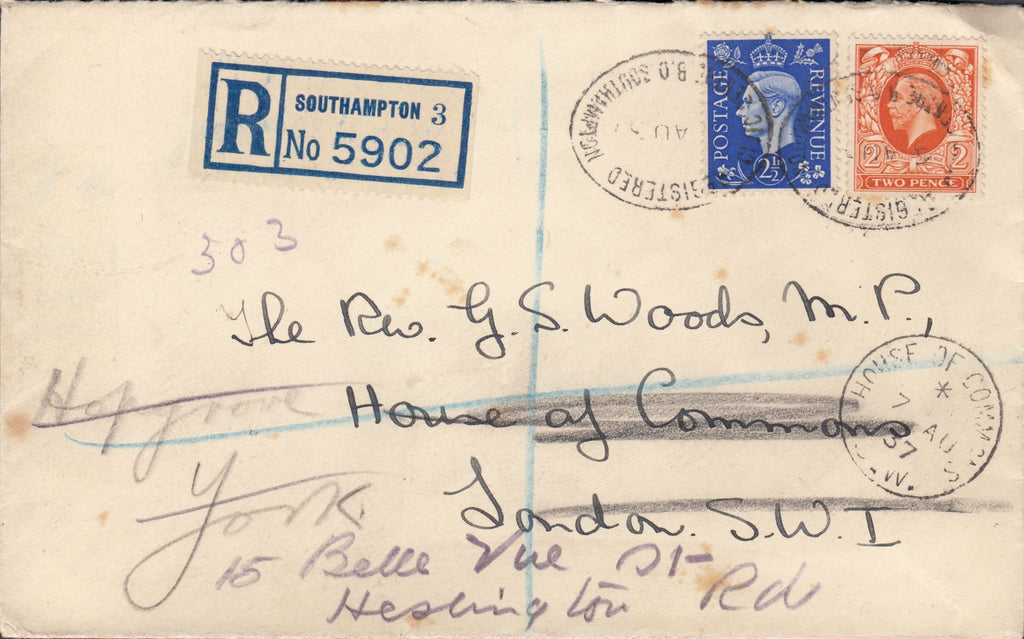 R SOUTHAMPTON 3
No 5902
REGISTERED B.O. SOUTHAMPTON
AU 37
POSTAGE REVENUE
2½
2 2
TWO PENCE
303
The Rev. G. S. Woods, M.P.,
House of Commons
London. S.W.I
HOUSE OF COMMONS
*
7 AU
37
S.W.
Hopgrove
York.
15 Belle Vue St
Heslington Rd